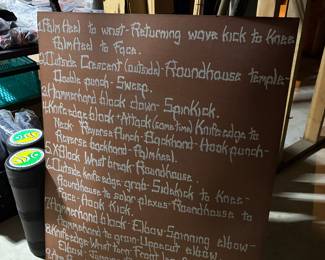 1. Palm Heel to wrist-Returning wave kick to Knee
Palm Heel to Face.
Outside Crescent (outside)-Roundhouse temple-
Double punch-Sweep.
Hammerhand block down-Spin Kick.
4. Knifeedge block-Attack (same time) Knifeedge to
Neck-Reverse Punch-Backhand-Hook punch-
Reverse backhand-Palmheel.
5. X Block Wrist break Roundhouse.
Outside knifeedge grab-Sidekick to Knee-
Roundhouse to solar plexes-Roundhouse to
Face-Hook Kick.
7. Hammerhand block-Elbow-Spinning elbow-
Hammerhand to groin-Uppercut elbow
8. Knifeedge Wrist turn-Front
Elbow-